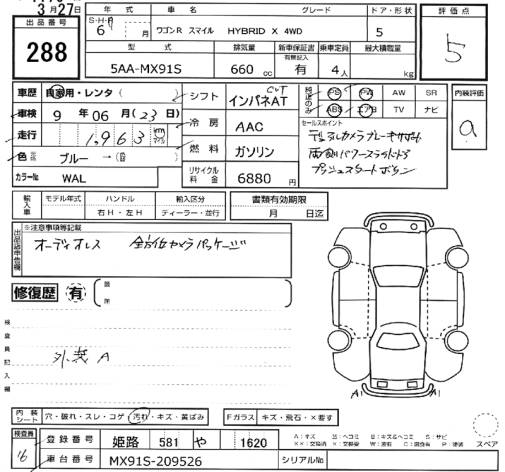 3月27日
出品番号
288
年式 車名 グレード ドア・形状
S・H・R 6 年 月 ワゴンR スマイル HYBRID X 4WD 5
型式 排気量 新車保証書 有無記入 乗車定員 最大積載量
5AA-MX91S 660 cc 有 4人 kg
評価点
5
車歴 自家用・レンタ( )
車検 9年 06月(23日)
走行 1,963 km マイル
色 ブルー → (色)
カラーNo WAL
シフト インパネAT CVT
冷房 AAC
燃料 ガソリン
リサイクル料金 6880円
純正のみ PS PW AW SR
ABS エアB TV ナビ
セールスポイント
デュアルカメラブレーキサポート
両側パワースライドドア
プッシュスタートボタン
内装評価
a
輸入車 モデル年式 ハンドル 輸入区分
右H・左H ディーラー・並行
書類有効期限
月 日迄
出品店申告欄
※注意事項等記載
オーディオレス 全方位カメラパッケージ
修復歴 有 箇所
検査員記入欄
外装A
A A
内装シート 穴・破れ・スレ・コゲ 汚れ・キズ・黄ばみ
Fガラス キズ・飛石・×要す
検査員
16
登録番号 姫路 581 や 1620
車台番号 MX91S-209526 シリアルNo
スペア